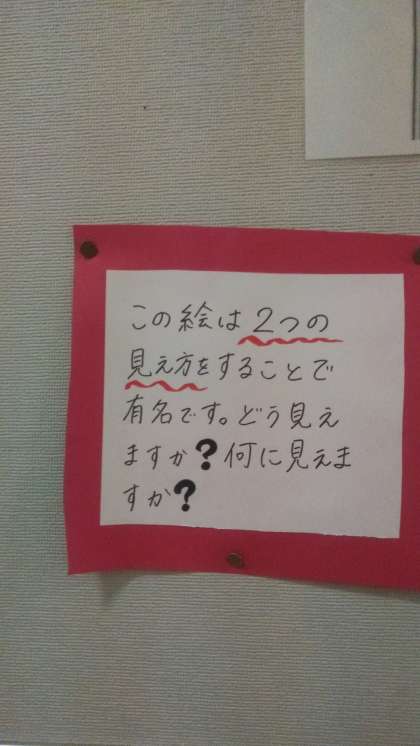 この絵は2つの
見え方をすることで
有名です。どう見え
ますか?何に見えま
すか?